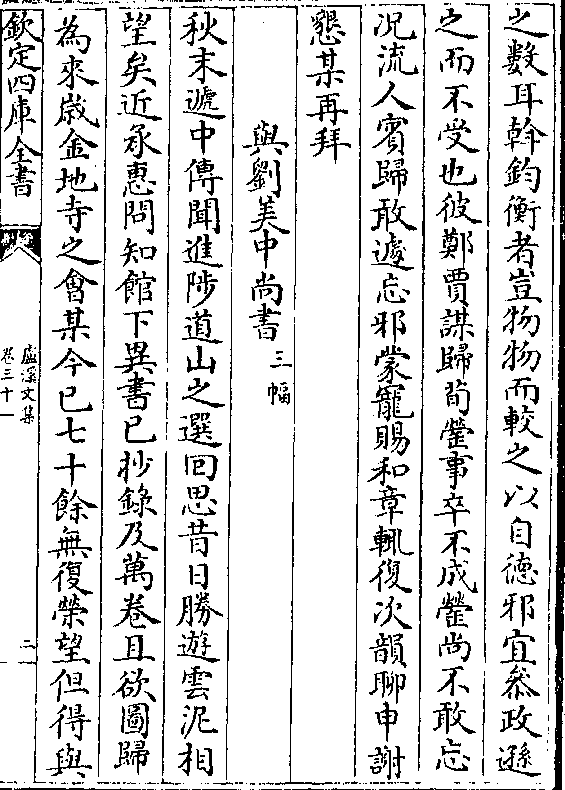 之數耳斡鈞衡者豈物物而較之以自德邪宜叅政遜
之而不受也彼鄭賈謀歸荀罃事卒不成罃尚不敢忘
况流人賓歸敢遽忘邪蒙寵賜和章輒復次韻聊申謝
懇某再拜
與劉美中尚書三幅
秋末遞中傳聞進陟道山之選囘思昔日勝遊雲泥相
望矣近承惠問知館下異書已抄錄及萬卷且欲圖歸
為來嵗金地寺之會某今已七十餘無復榮望但得與
欽定四庫全書
盧溪文集
卷三十一
二